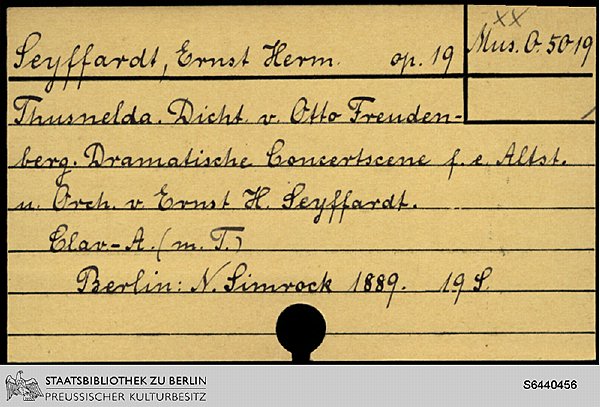 xx
Seyffardt, Ernst Herm. op. 19 Mus. O. 5019
Thusnelda. Dicht. v. Otto Freuden-
berg. Dramatische Concertscene f. e. Altst.
u. Orch. v. Ernst H. Seyffardt.
Clav-A. (m. T.)
Berlin: N. Simrock 1889. 19 S.
STAATSBIBLIOTHEK ZU BERLIN
PREUSSISCHER KULTURBESITZ
S6440456